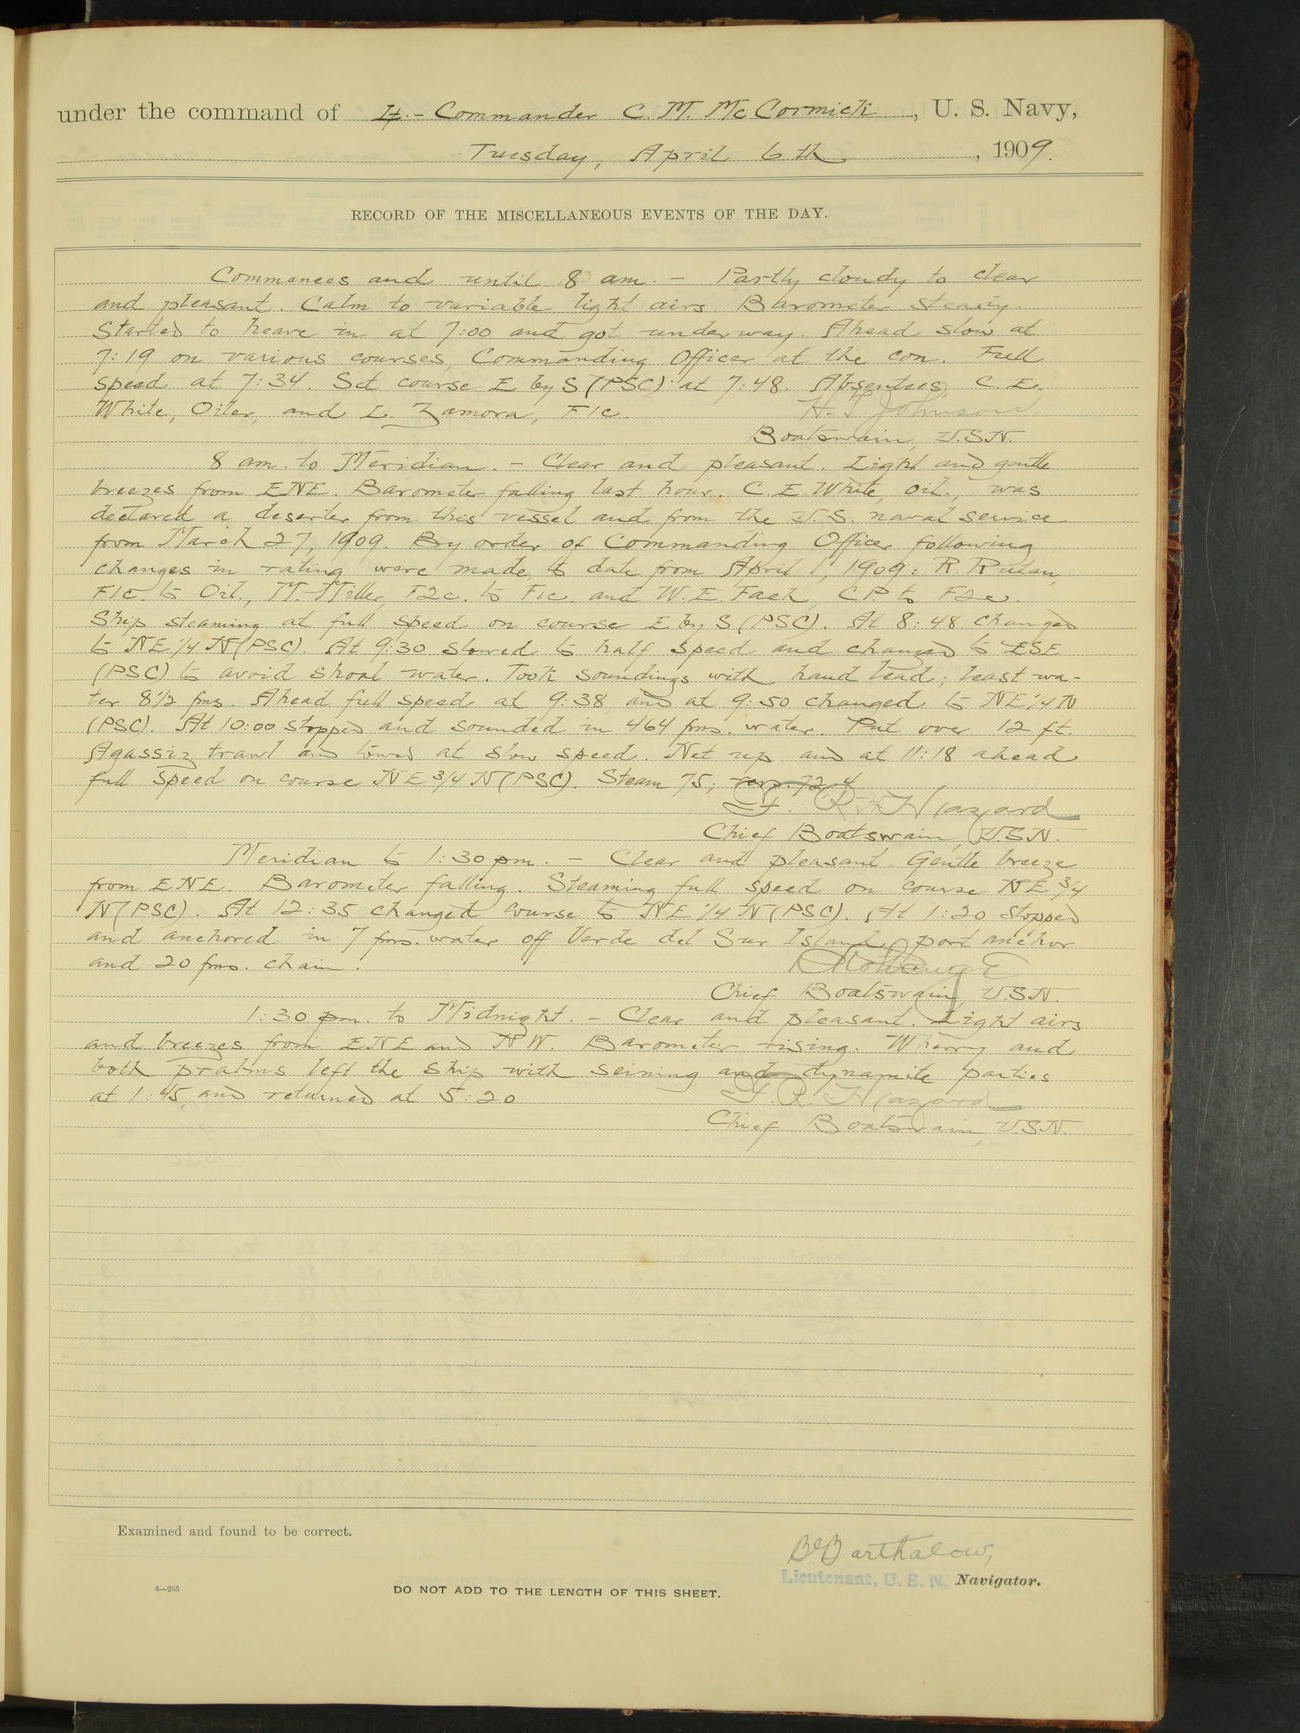 under the command of Lt.-Commander C. M. McCormick, U. S. Navy,
Tuesday, April 6th, 1909.
RECORD OF THE MISCELLANEOUS EVENTS OF THE DAY.
Commences and until 8 am. — Partly cloudy to clear
and pleasant. Calm to variable light airs Barometer steady.
Started to heave in at 7:00 and got underway. Ahead slow at
7:19 on various courses, Commanding Officer at the con. Full
speed at 7:34. Set course E by S (PSC) at 7:48. Absentees, C. E.
White, Oiler, and L. Zamora, F1c. H. T. Johnson
Boatswain, U.S.N.
8 am. to Meridian. — Clear and pleasant. Light and gentle
breezes from ENE. Barometer falling last hour. C. E. White, Oil., was
declared a deserter from this vessel and from the U.S. naval service
from March 27, 1909. By order of Commanding Officer following
changes in rating were made, to date from April 1, 1909: R
F1c. to Oil., M. Miller, F2c. to F1c. and W. E. CP. to F2c.
Ship steaming at full speed on course E by S (PSC). At 8:48 changed
to NE 1/4 N (PSC). At 9:30 slowed to half speed and changed to ESE
(PSC) to avoid shoal water. Took soundings with hand lead; least wa-
ter 8 1/2 fms. Ahead full speed at 9:38 and at 9:50 changed to NE 1/4 N
(PSC). At 10:00 stopped and sounded in 464 fms. water. Put over 12 ft.
Agassiz trawl and towed at slow speed. Net up and at 11:18 ahead
full speed on course NE 3/4 N (PSC). Steam 75; revs. 72.4
F. R. Hazard
Chief Boatswain, U.S.N.
Meridian to 1:30 pm. — Clear and pleasant. Gentle breeze
from ENE. Barometer falling. Steaming full speed on course NE 3/4
N (PSC). At 12:35 changed course to NE 1/4 N (PSC). At 1:20 stopped
and anchored in 7 fms. water off Verde del Sur Island, port anchor
and 20 fms. chain.
Chief Boatswain, U.S.N.
1:30 pm. to Midnight. — Clear and pleasant. Light airs
and breezes from ENE and NW. Barometer rising. Wherry and
both prahms left the ship with seining and dynamite parties
at 1:45, and returned at 5:20
F. R. Hazard
Chief Boatswain, U.S.N.
Examined and found to be correct.
Barthalow,
Lieutenant, U. S. N. Navigator.
4—265
DO NOT ADD TO THE LENGTH OF THIS SHEET.